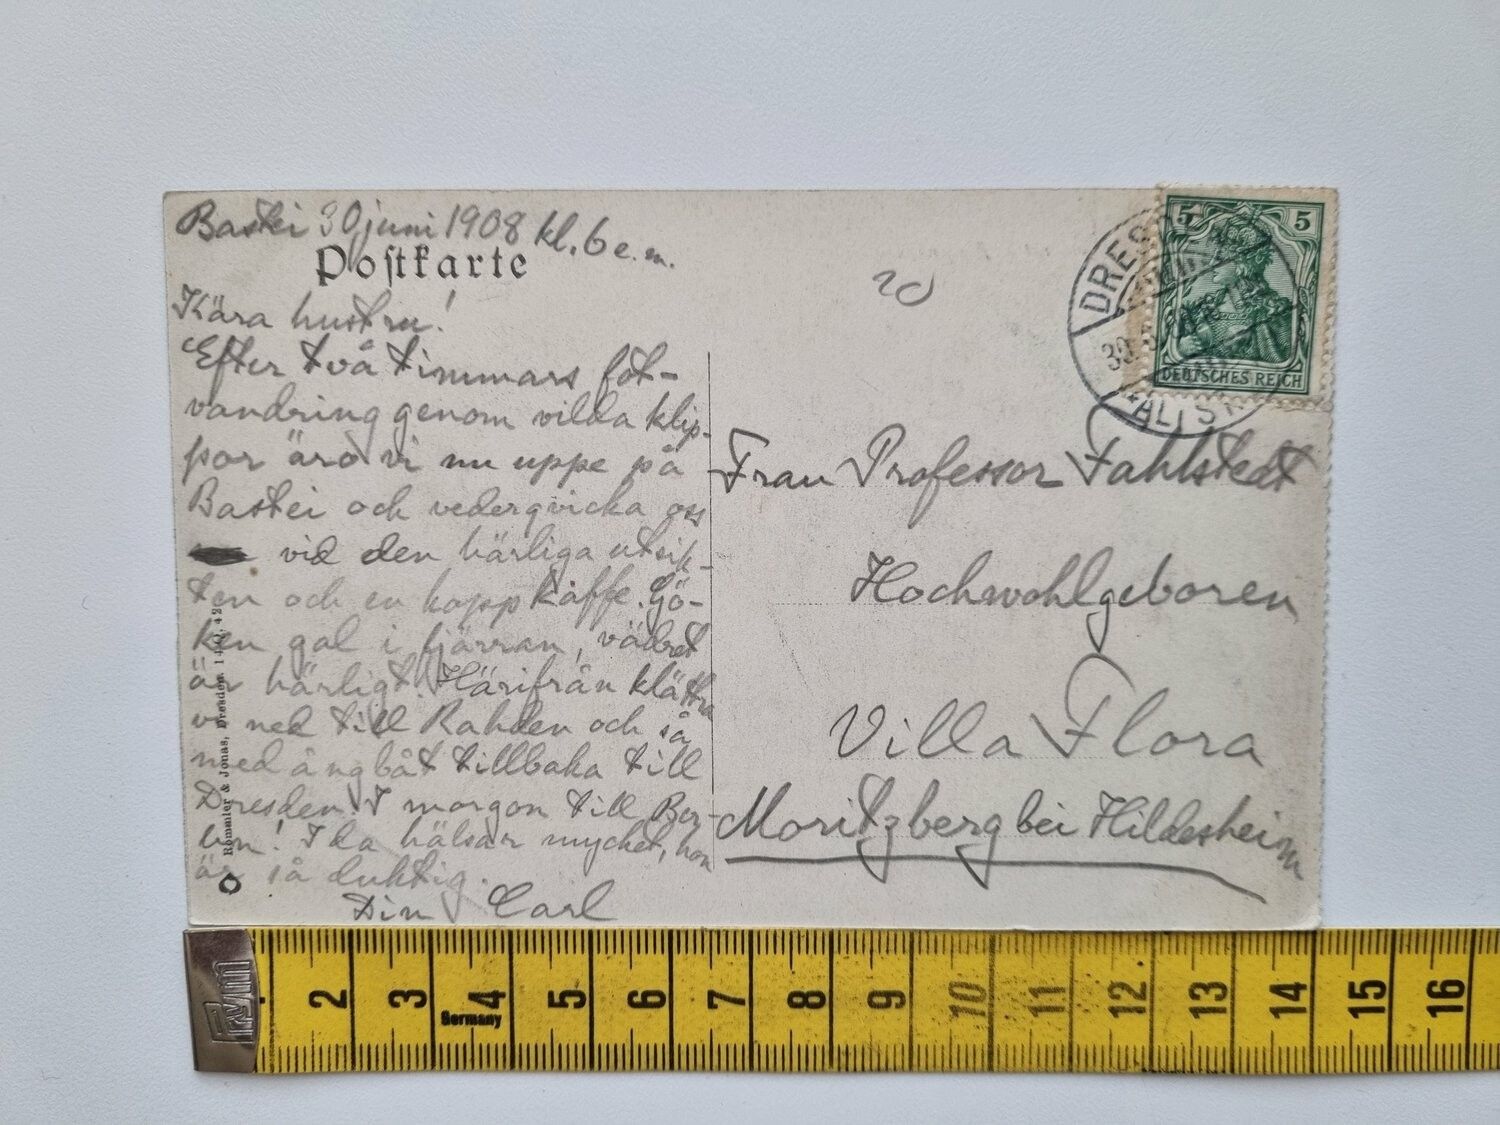 Bastei 30 juni 1908 kl. 6 e.m.
Postkarte
20
Kära hustru!
Efter två timmars fot-
vandring genom vilda klip-
por äro vi nu uppe på
Bastei och vedergvicka oss
vid den härliga utsik-
ten och en kopp kaffe. Gö-
ken gal i fjärran, vädret
är härligt. Härifrån klättra
vi ned till Rahden och så
med ångbåt tillbaka till
Dresden. I morgon till Ber-
lin! Ida hälsar mycket, hon
är så duktig.
Din Carl
Römmler & Jonas, Dresden
DRESDEN
ALTST.
5 5
DEUTSCHES REICH
Frau Professor Fahlstedt
Hochwohlgeboren
Villa Flora
Moritzberg bei Hildesheim
2 3 4 5 6 7 8 9 10 11 12 13 14 15 16
Germany